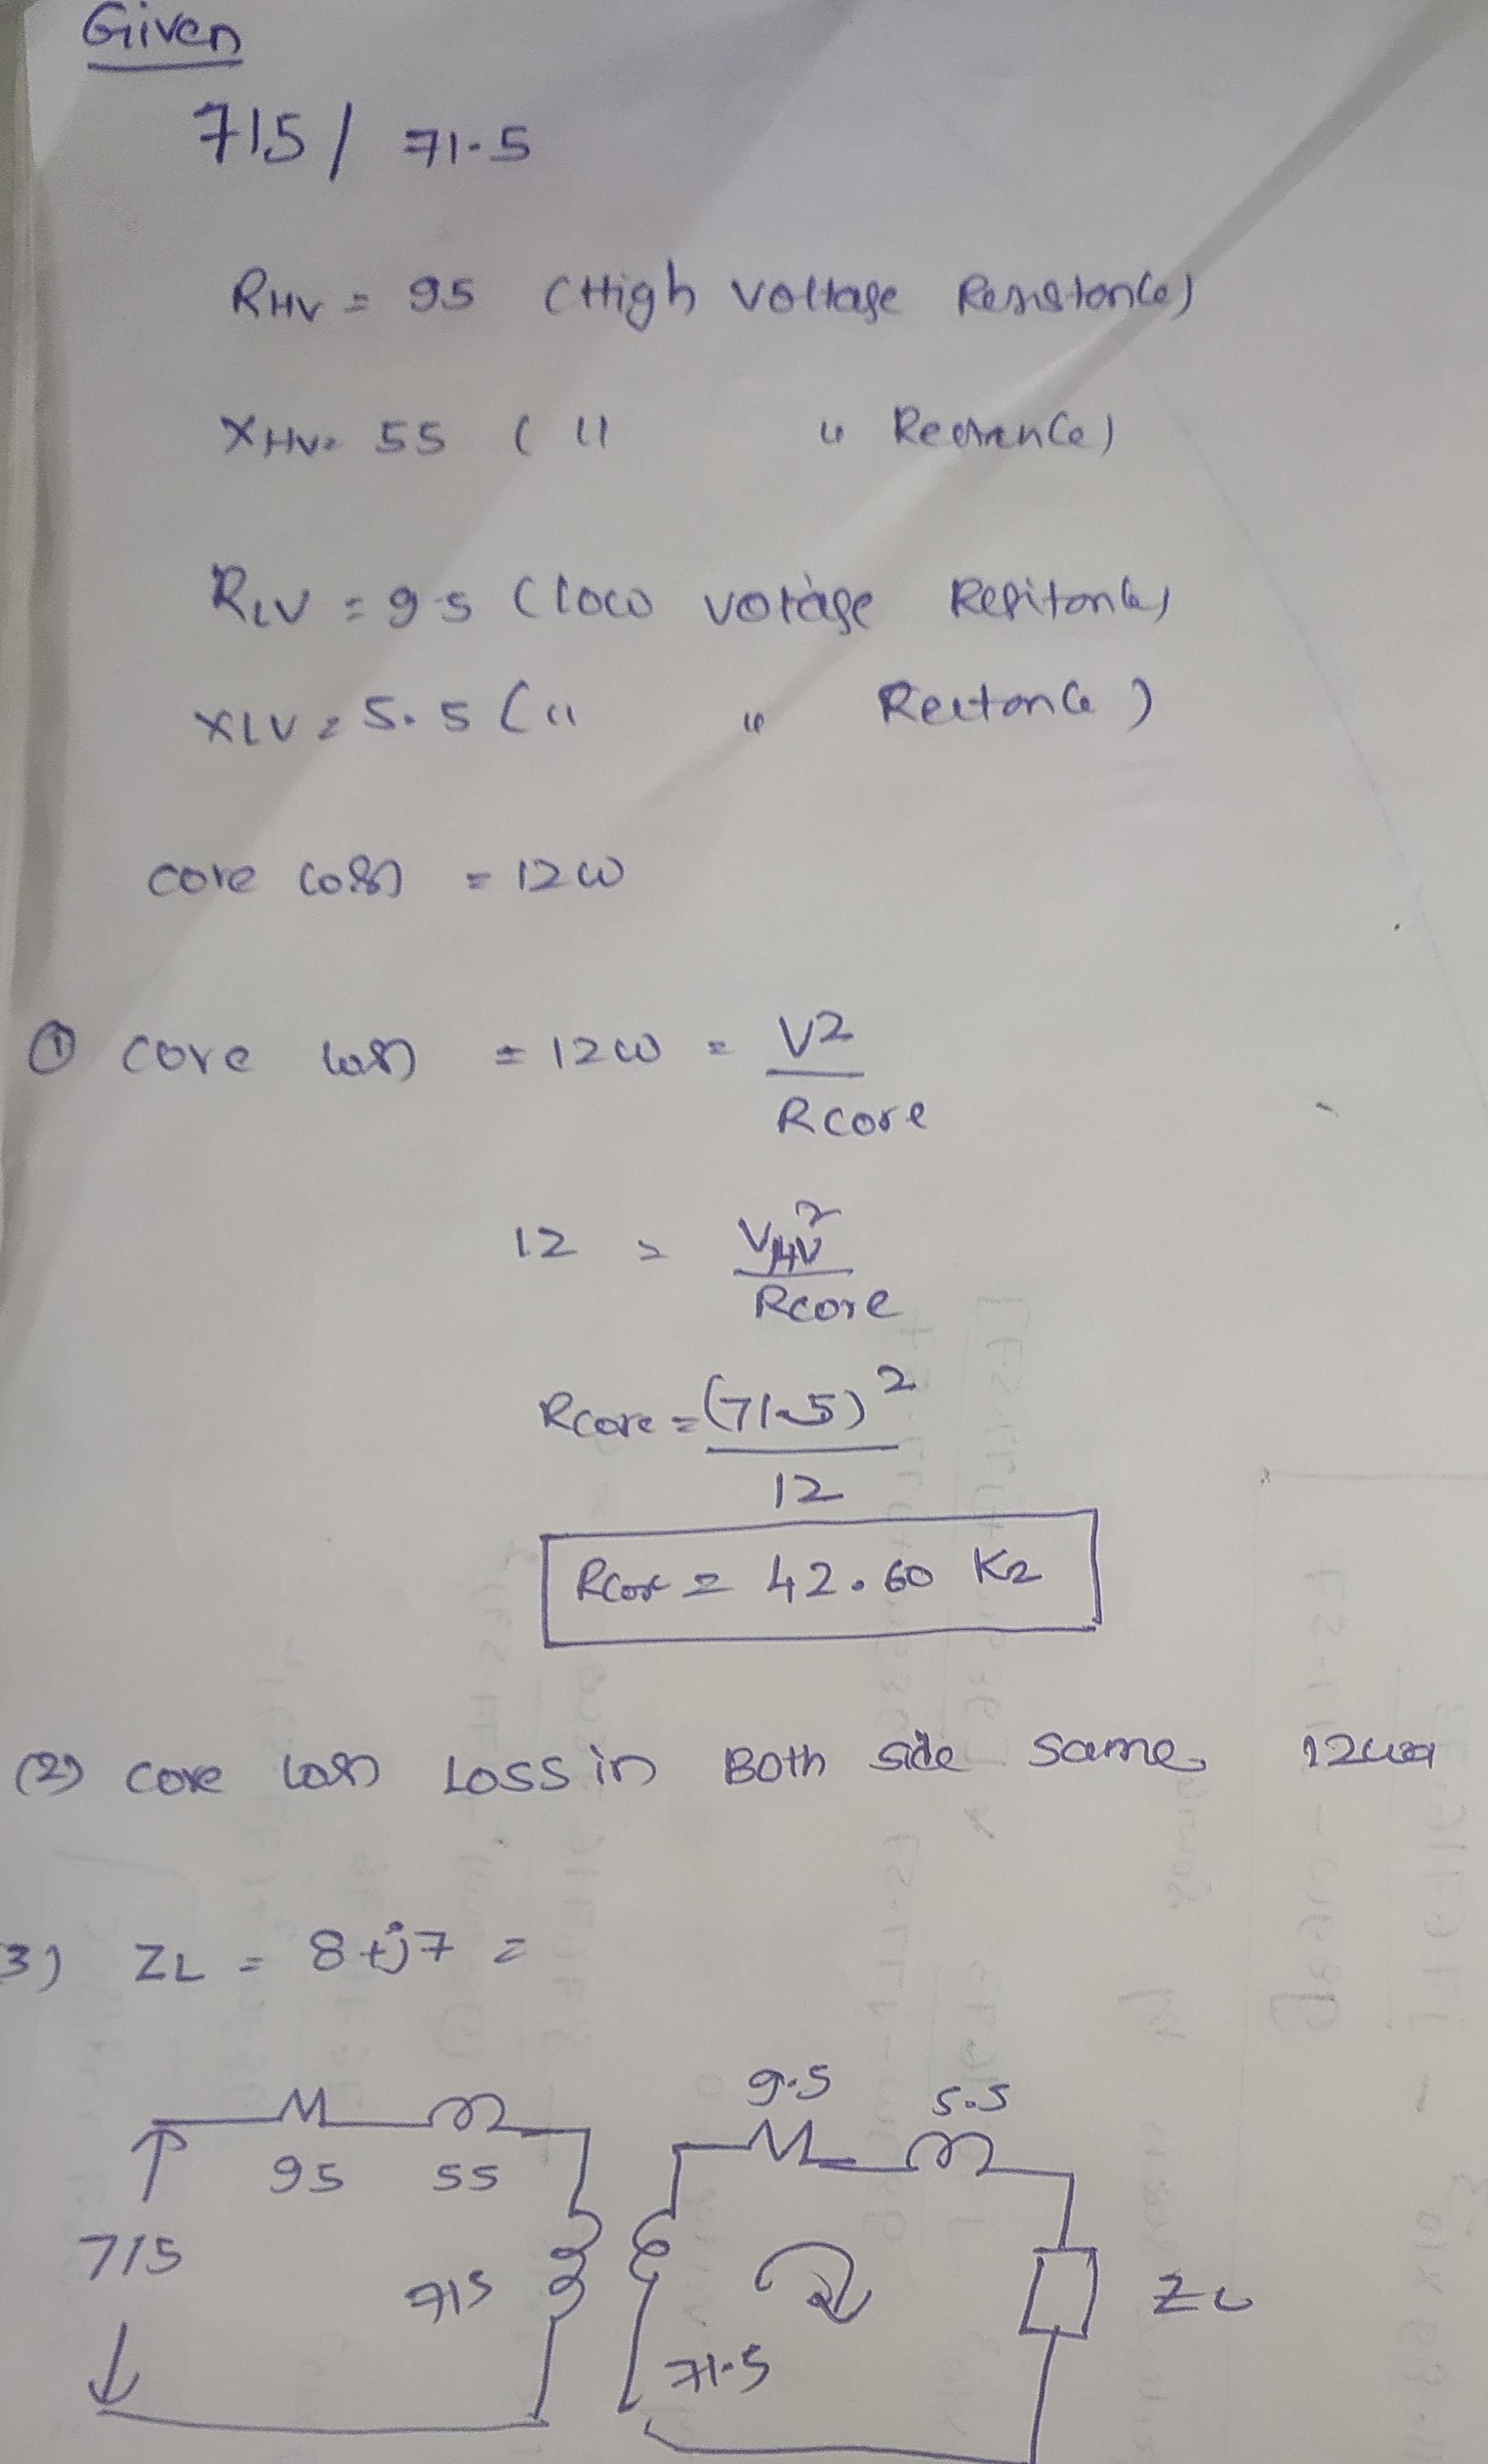 Given
715 / 71.5
RHV = 95 (High voltage Resistance)
XHV = 55 ( " " Rectance)
RLV = 9.5 (low votage Resitance)
XLV = 5.5 ( " " Rectance)
core loss = 12w
① core loss = 12w = V2
Rcore
12 = VHV²
Rcore
Rcore = (71.5)²
12
Rcor = 42.60 K2
(2) core loss Loss in Both side same 12w
3) ZL = 8+j7 =
9.5 5.5
95 55
715
715
ZL
71.5